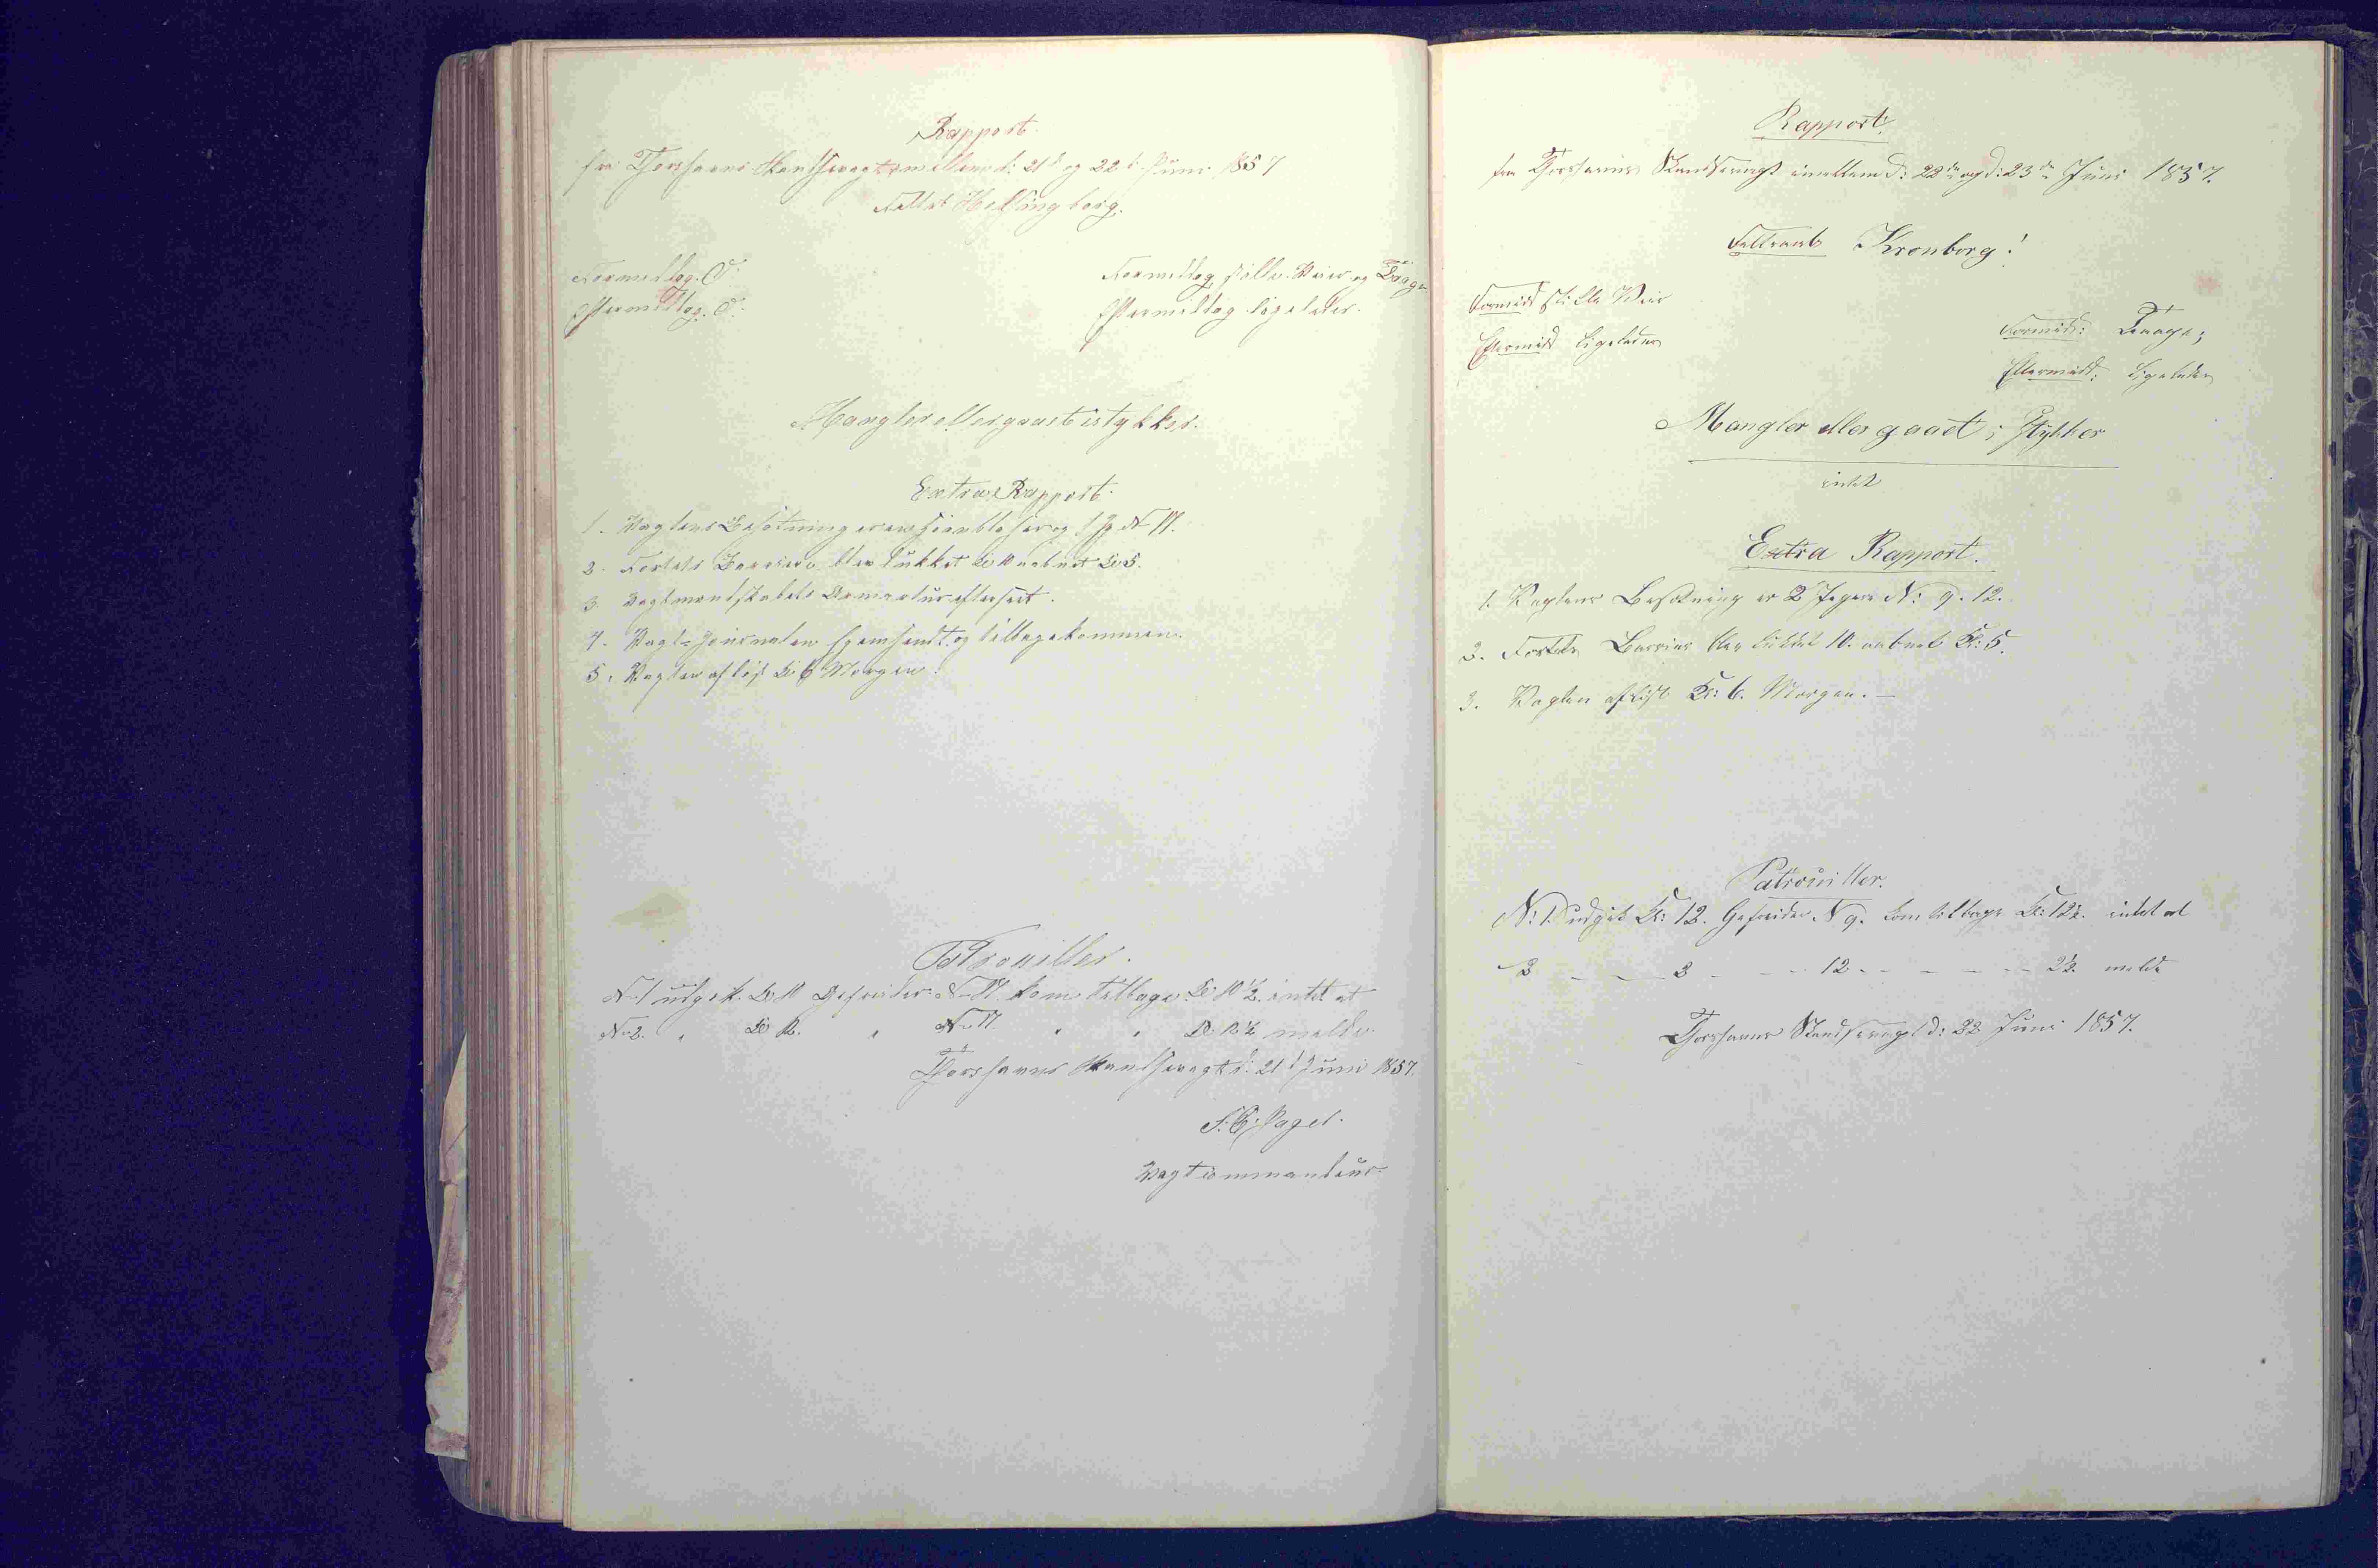 Rapport.
fra Thorshavns Skandsevagt imellem d: 21d og 22d Juni 1857
Feltrb Helsingborg.
Formiddag. O.
Eftermiddag. O.
Formiddag stille Veir og Taage
Eftermiddag ligeledes.
Mangler eller gaaet istykker.
Extra Rapport.
1. Vagtens Besætning er og 1 Jg. N 17.
2. Fortets Barriere blev lukket Kl 10 aabnet Kl 5.
3. Vagtmandskabets Armartur efterseet.
4. Vagt-Journalen fremsendt og tilbagekommen.
5. Vagten afløst Kl 6 Morgen.
Patrouiller.
N-1 udgik. Kl 10 Gefreider N-17. kom tilbage Kl 10 1/2. intet at
N-2. " Kl 12. " N-17. " " Kl. 12 1/2 melde.
Thorshavns Skandsevagt d: 21d Juni 1857.
Vagtcommandeur
Rapport.
fra Thorshavns Skandsevagt imellem d: 22de og d: 23de Juni 1857.
Feltraab Kronborg!
Formidd stille Veir
Eftermidd ligeledes
Formidd: Taage;
Eftermidd: ligeledes
Mangler eller gaaet i Stykker
intet
Extra Rapport.
1. Vagtens Besætning er 2 Jegere N: 9. 12.
2. Fortets Barriere blev lukket 10. aabnet Kl: 5.
3. Vagten afløst Kl: 6. Morgen. —
Patrouiller.
N: 1. udgik Kl: 12. Gefreider N 9. kom tilbage Kl: 12½. intet at
- 2 - - - 2 - - - 12 - - - - - - 2½ melde
Thorshavns Skandsevagt d: 22 Juni 1857.